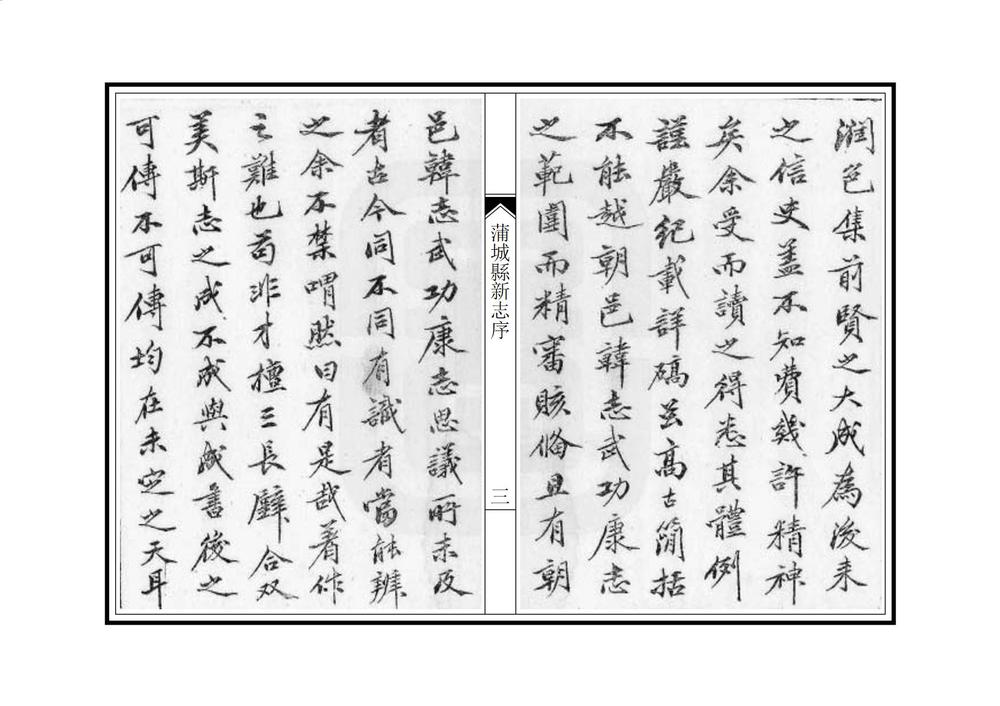 潤色集前賢之大成為後来
之信史盖不知費幾許精神
矣余受而讀之得悉其體例
謹嚴紀載詳碻至高古簡括
不能越朝邑韓志武功康志
之範圍而精審賅俻且有朝
蒲城縣新志序
三
邑韓志武功康志思議所未及
者古今同不同有識者當能辨
之余不禁喟然曰有是哉著作
之難也苟非才擅三長璧合双
美斯志之成不成與成書後之
可傳不可傳均在未定之天耳